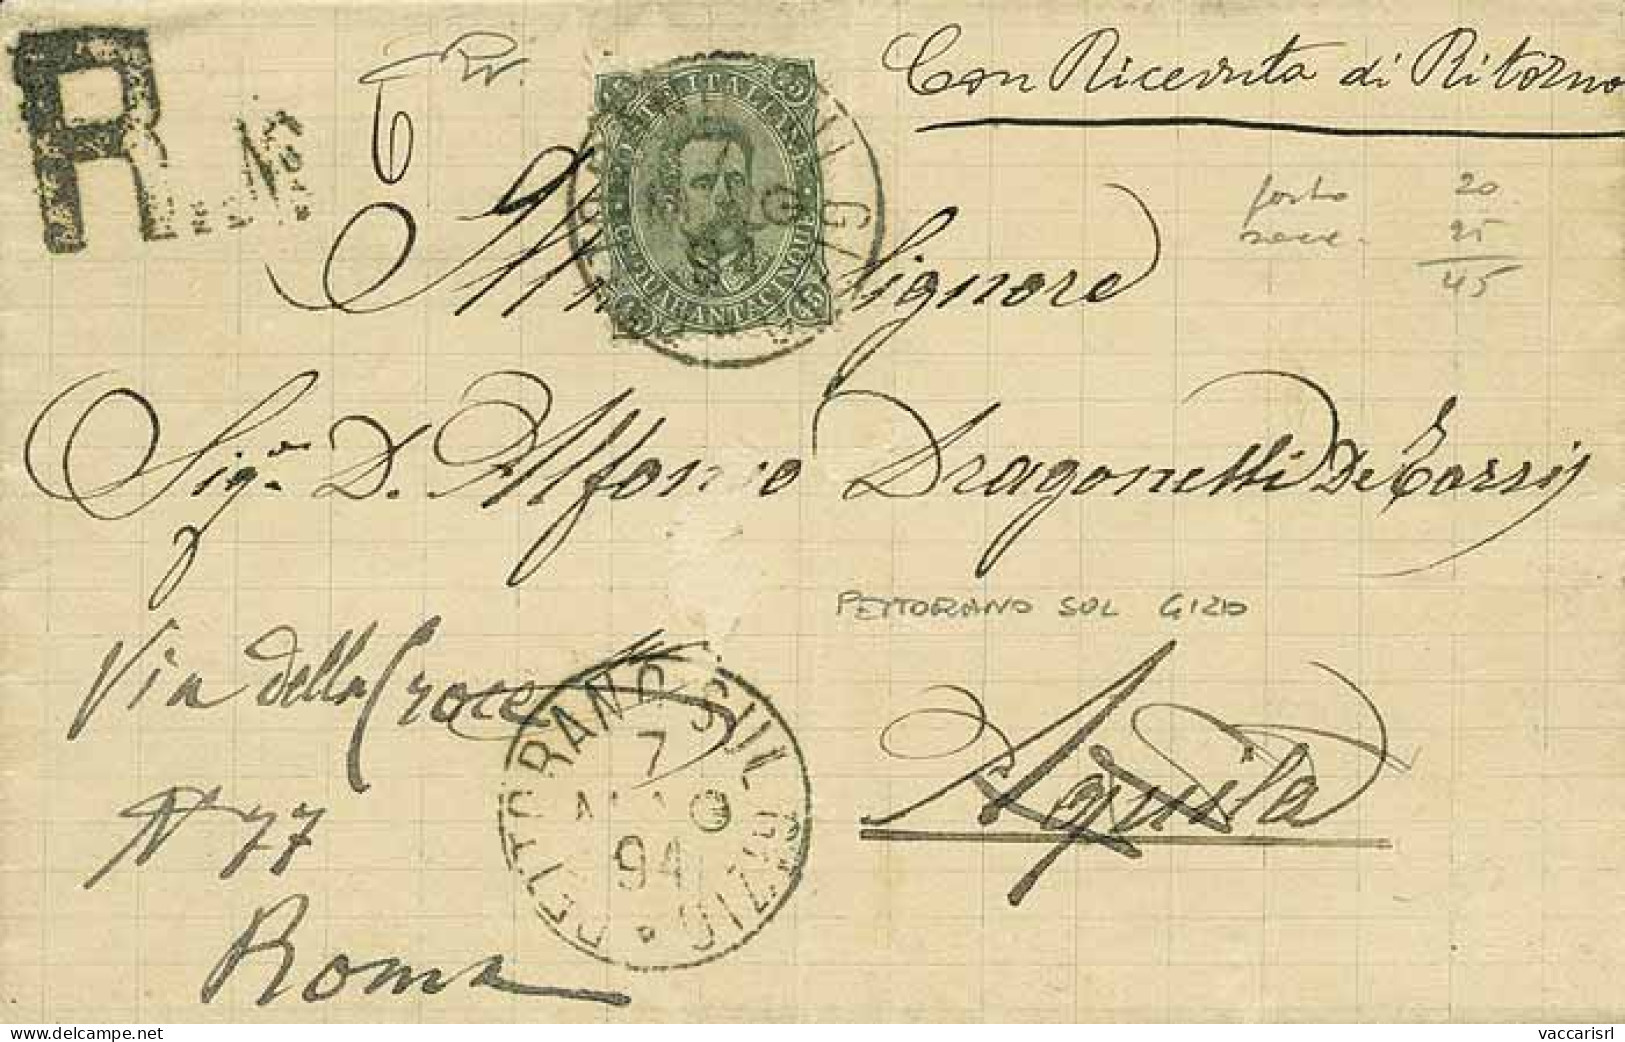 R
Con Ricevuta di Ritorno
6
POSTE ITALIANE
QUARANTACINQUE
45
porto 20
25
45
Signore
Sigr. D. Alfonso Dragonetti De Torris
PETTORANO SUL GIZIO
Via della Croce
N 77
Roma
Aquila
PETTORANO SUL GIZIO
7
94
vaccarisrl